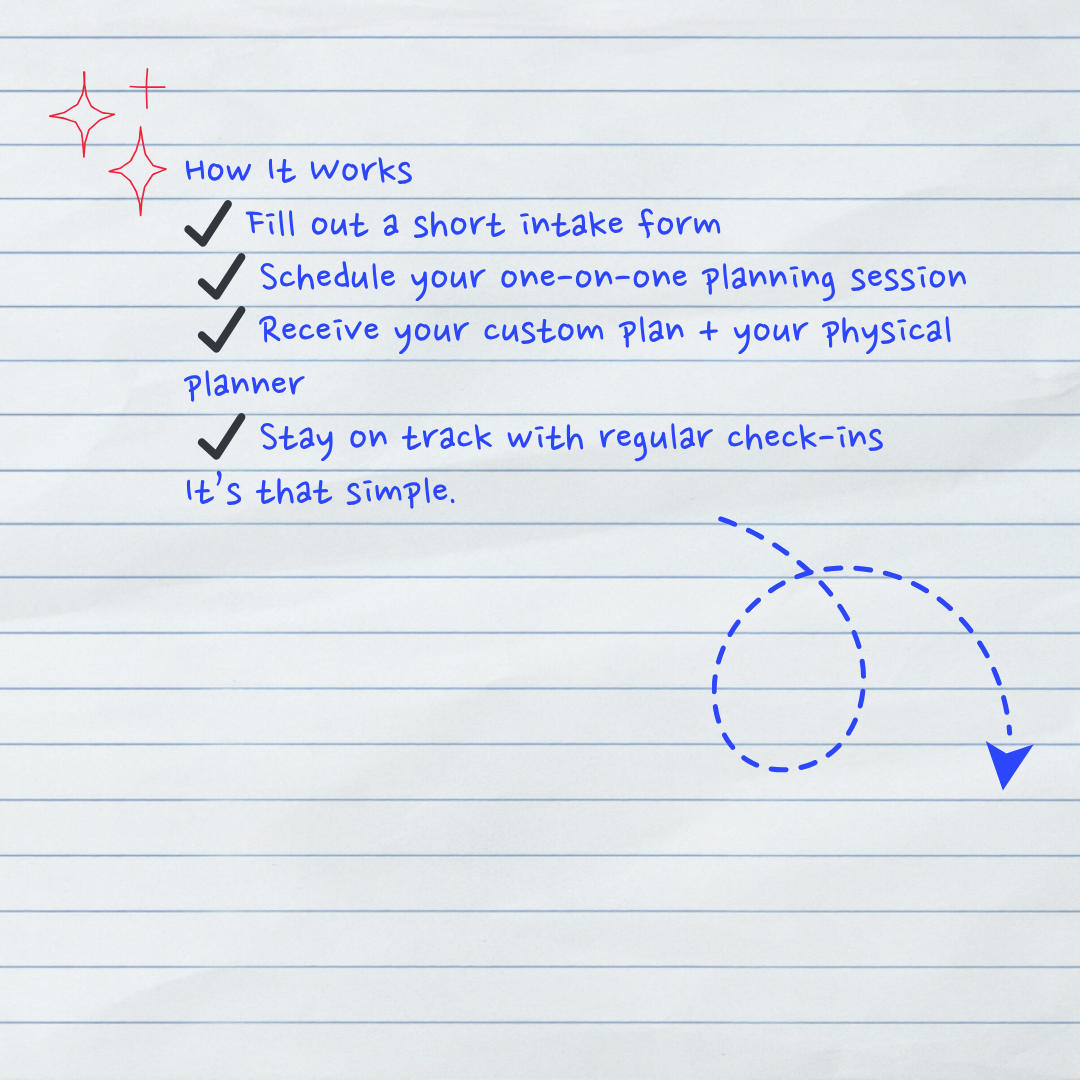 How It Works
✔ Fill out a short intake form
✔ Schedule your one-on-one planning session
✔ Receive your custom plan + your physical
planner
✔ Stay on track with regular check-ins
It's that simple.